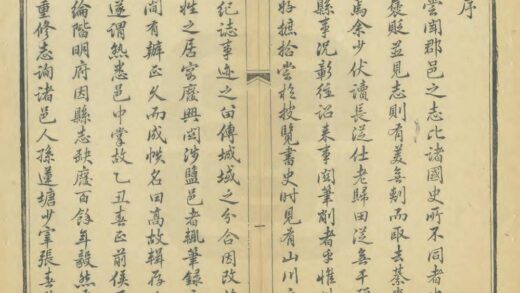 序
嘗聞郡邑之志比諸國史所不同者
褒貶並見志則有美無刺而取去綦
焉余少伏讀長従仕老歸田従無干預
縣事况彰往詔来事関筆削者乎惟
好摭拾嘗於披覽書史時見有山川
紀誌事迹之由傳城域之分合因改
姓之居家廢興関涉鹽邑者輙筆録
間有辨正久而成帙名曰高故輯存
遂謂熟悉邑中掌故乙丑喜正前侯
綸階明府因縣志缺廢百餘年毅然
重修志詢諸邑人孫蓮塘少宰張春